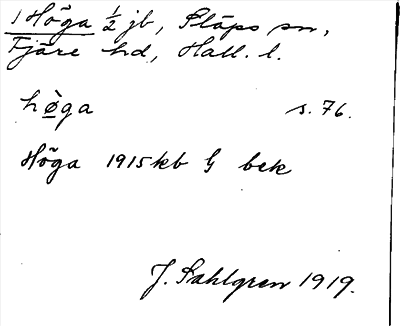 1 Höga ½ jb, Släps sn,
Fjäre hd, Hall. l.
hø̀ga s. 76.
Höga 1915 kb G bek
J. Sahlgren 1919.